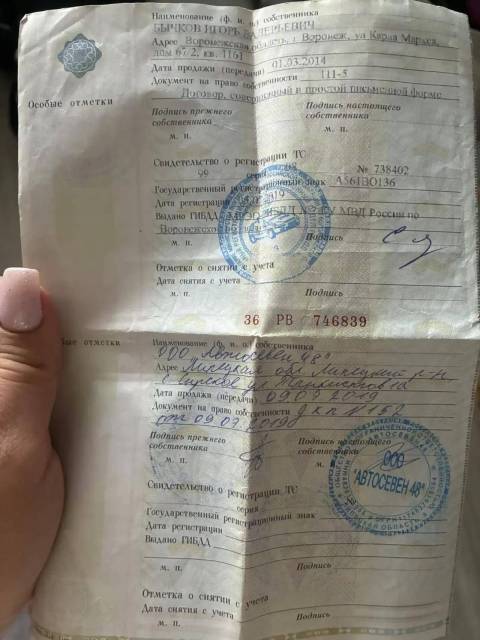 Наименование (ф. и. о.) собственника
БЫЧКОВ ИГОРЬ ВАЛЕРЬЕВИЧ
Адрес Воронежская область, г Воронеж, ул Карла Маркса,
дом 67/2, кв. 1161
Дата продажи (передачи) 01.03.2014
Документ на право собственности 111-5
Договор, совершенный в простой письменной форме
Особые отметки
Подпись прежнего собственника
Подпись настоящего собственника
м. п.
м. п.
Свидетельство о регистрации ТС
99 серия 03 № 738402
Государственный регистрационный знак А561ВО136
Дата регистрации 2019
Выдано ГИБДД МВД России по
Воронежской
м. п.
Подпись
Отметка о снятии с учета
Дата снятия с учета
м. п.
Подпись
36 РВ 746839
Особые отметки
Наименование (ф. и. о.) собственника
ООО "Автосевен 48"
Адрес Липецкая обл Липецкий р-н
Дата продажи (передачи) 09.07.2019
Документ на право собственности дкп №152
от 09.07.2019
Подпись прежнего собственника
Подпись настоящего собственника
м. п.
м.
ООО
"АВТОСЕВЕН 48"
Свидетельство о регистрации ТС
серия
Государственный регистрационный знак
Дата регистрации
Выдано ГИБДД
м. п.
Подпись
Отметка о снятии с учета
Дата снятия с учета
м. п.
Подпись